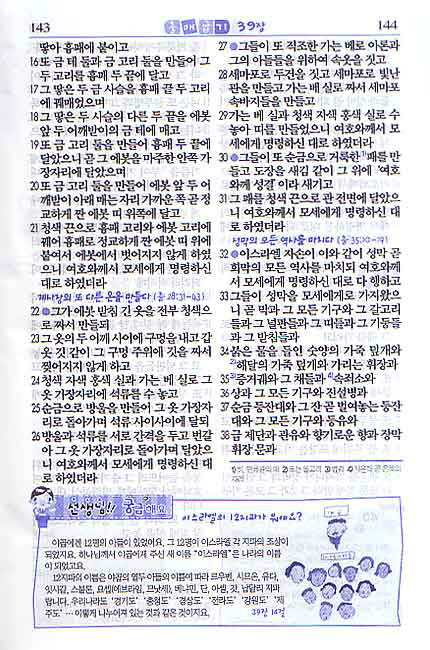 143
출애굽기 39장
144
땋아 흉패에 붙이고
16 또 금 테 둘과 금 고리 둘을 만들어 그
두 고리를 흉패 두 끝에 달고
17 그 땋은 두 금 사슬을 흉패 끝 두 고리
에 꿰매었으며
18 그 땋은 두 사슬의 다른 두 끝을 에봇
앞 두 어깨받이의 금 테에 매고
19 또 금 고리 둘을 만들어 흉패 두 끝에
달았으니 곧 그 에봇을 마주한 안쪽 가
장자리에 달았으며
20 또 금 고리 둘을 만들어 에봇 앞 두 어
깨받이 아래 매는 자리 가까운 쪽 곧 정
교하게 짠 에봇 띠 위쪽에 달고
21 청색 끈으로 흉패 고리와 에봇 고리에
꿰어 흉패로 정교하게 짠 에봇 띠 위에
붙여서 에봇에서 벗어지지 않게 하였
으니 여호와께서 모세에게 명령하신
대로 하였더라
제사장의 또 다른 옷을 만들다 (출 28:31-43)
22 그가 에봇 받침 긴 옷을 전부 청색으
로 짜서 만들되
23 그 옷의 두 어깨 사이에 구멍을 내고 갑
옷 깃 같이 그 구멍 주위에 깃을 짜서
찢어지지 않게 하고
24 청색 자색 홍색 실과 가는 베 실로 그
옷 가장자리에 석류를 수 놓고
25 순금으로 방울을 만들어 그 옷 가장자
리로 돌아가며 석류 사이사이에 달되
26 방울과 석류를 서로 간격을 두고 번갈
아 그 옷 가장자리로 돌아가며 달았으
니 여호와께서 모세에게 명령하신 대
로 하였더라
27 그들이 또 직조한 가는 베로 아론과
그의 아들들을 위하여 속옷을 짓고
28 세마포로 두건을 짓고 세마포로 빛난
관을 만들고 가는 베 실로 짜서 세마포
속바지들을 만들고
29 가는 베 실과 청색 자색 홍색 실로 수
놓아 띠를 만들었으니 여호와께서 모
세에게 명령하신 대로 하였더라
30 그들이 또 순금으로 거룩한 패를 만
들고 도장을 새김 같이 그 위에 '여호
와께 성결' 이라 새기고
31 그 패를 청색 끈으로 관 전면에 달았으
니 여호와께서 모세에게 명령하신 대
로 하였더라
성막의 모든 역사를 마치다 (출 35:10-19)
32 이스라엘 자손이 이와 같이 성막 곧
회막의 모든 역사를 마치되 여호와께
서 모세에게 명령하신 대로 다 행하고
33 그들이 성막을 모세에게로 가져왔으
니 곧 막과 그 모든 기구와 그 갈고리
들과 그 널판들과 그 띠들과 그 기둥들
과 그 받침들과
34 붉은 물을 들인 숫양의 가죽 덮개와
2)해달의 가죽 덮개와 가리는 휘장과
35 3)증거궤와 그 채들과 4)속죄소와
36 상과 그 모든 기구와 진설병과
37 순금 등잔대와 그 잔 곧 벌여놓는 등잔
대와 그 모든 기구와 등유와
38 금 제단과 관유와 향기로운 향과 장막
휘장 문과
선생님!! 궁금해요
이스라엘의 12지파가 뭐예요?
야곱에겐 12명의 아들이 있었어요. 그 12명이 이스라엘 각 지파의 조상이
되었지요. 하나님께서 야곱에게 주신 새 이름 "이스라엘"은 나라의 이름
이 되었고요.
12지파의 이름은 야곱의 열두 아들의 이름에 따라 르우벤, 시므온, 유다,
잇사갈, 스불론, 요셉(에브라임, 므낫세), 베냐민, 단, 아셀, 갓, 납달리 지파
랍니다. 우리나라도 '경기도' '충청도' '경상도' '전라도' '강원도' '제
주도' … 이렇게 나누어져 있는 것과 같은 것이지요.
39장 14절